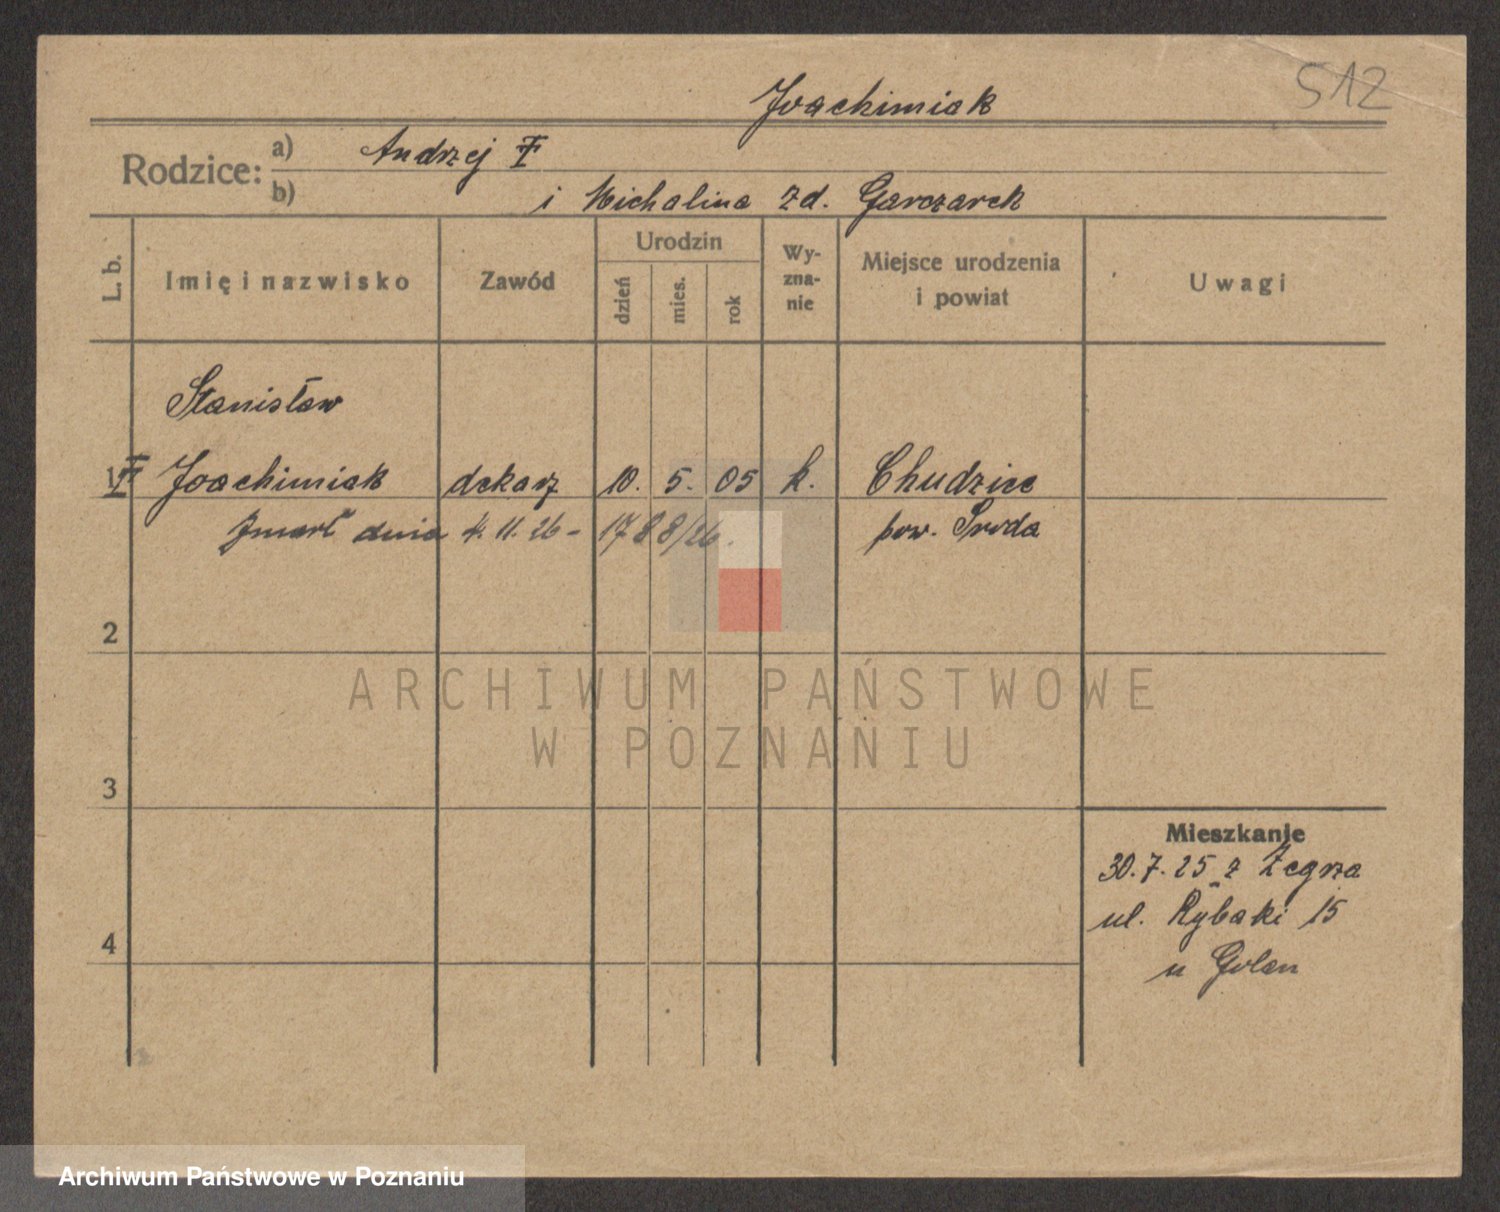 512
Joachimiak
Rodzice: a) Andrzej
b) i Michalina zd. Garczarek
L. b.
Imię i nazwisko
Zawód
Urodzin
dzień
mies.
rok
Wy-
zna-
nie
Miejsce urodzenia
i powiat
Uwagi
Stanisław
1 Joachimiak dekarz 10. 5. 05 k. Chudzice
Zmarł dnia 4.11.26 - 1788/26. pow. Środa
2
3
4
Mieszkanie
30.7.25 z Żegrza
ul. Rybaki 15
u Golan
ARCHIWUM PAŃSTWOWE
W POZNANIU
Archiwum Państwowe w Poznaniu